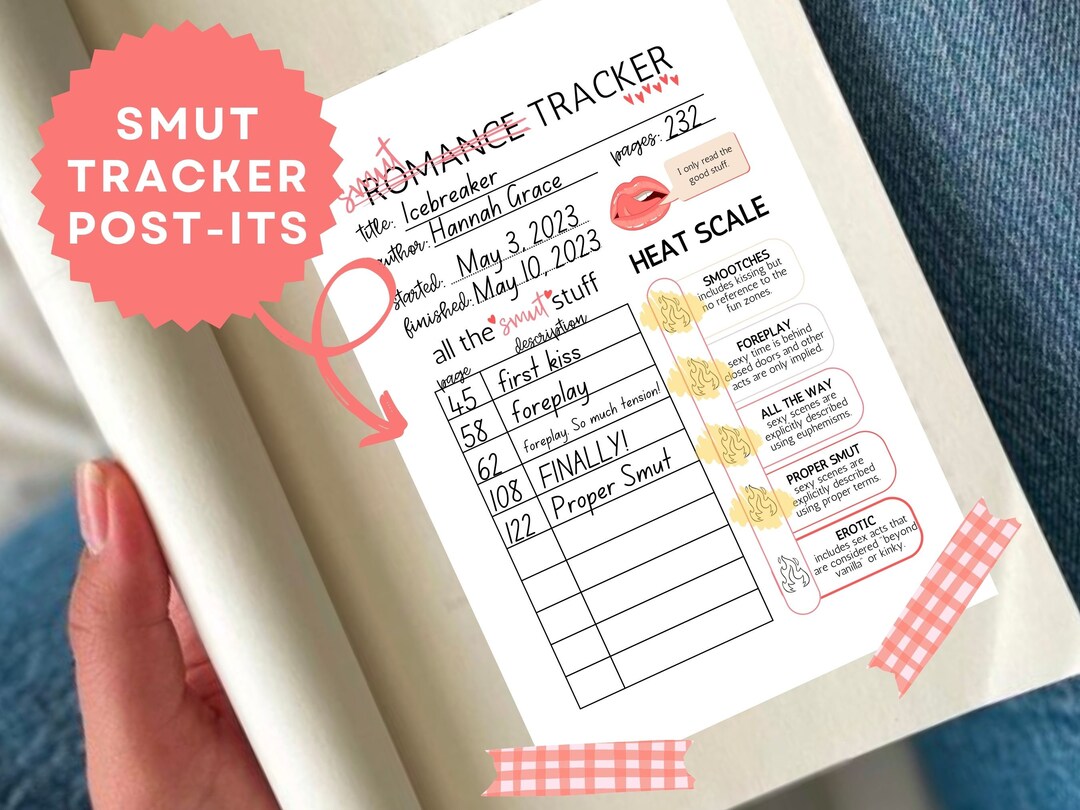 SMUT
TRACKER
POST-ITS
smut
ROMANCE TRACKER
title: Icebreaker
author: Hannah Grace
pages: 232
started: May 3, 2023
finished: May 10, 2023
I only read the
good stuff.
all the smut stuff
page description
45 first kiss
58 foreplay
62 foreplay. So much tension!
108 FINALLY!
122 Proper Smut
HEAT SCALE
SMOOTCHES
includes kissing but
no reference to the
fun zones.
FOREPLAY
sexy time is behind
closed doors and other
acts are only implied.
ALL THE WAY
sexy scenes are
explicitly described
using euphemisms.
PROPER SMUT
sexy scenes are
explicitly described
using proper terms.
EROTIC
includes sex acts that
are considered "beyond
vanilla" or kinky.